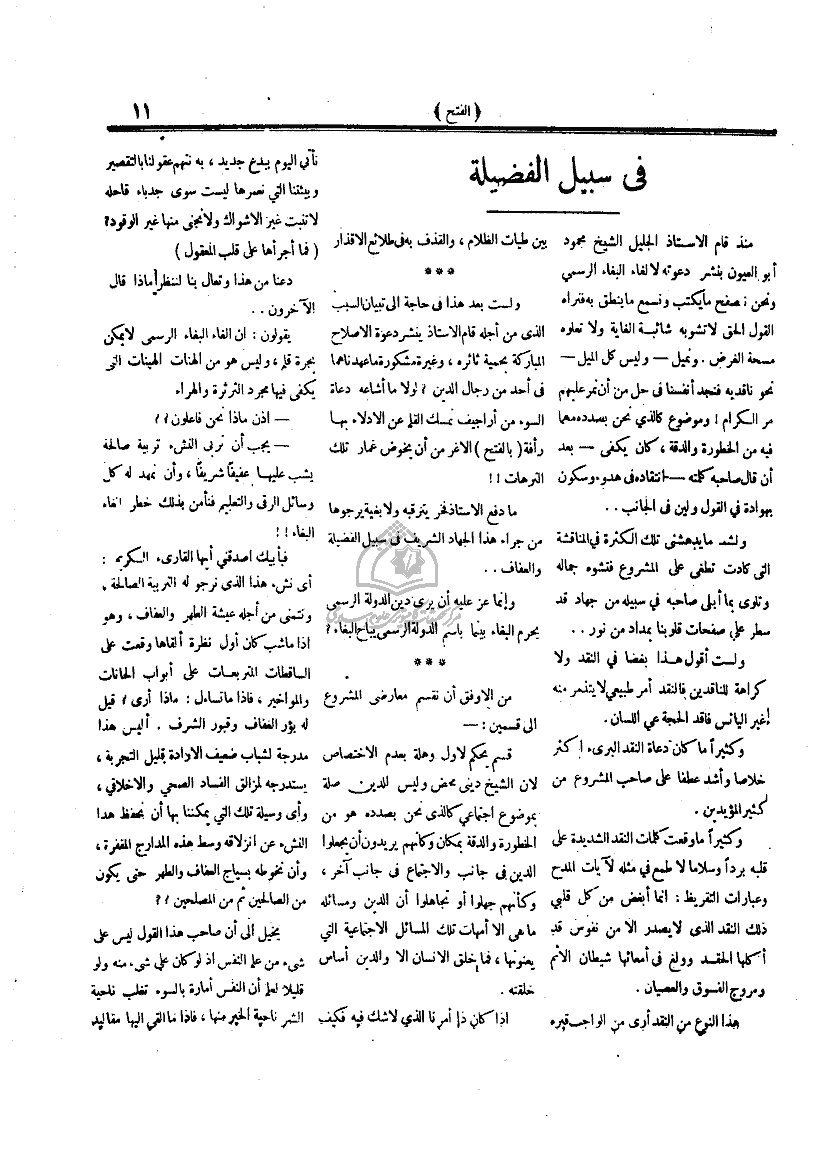 ١١
﴿ الفتح ﴾
فى سبيل الفضيلة
منذ قام الاستاذ الجليل الشيخ محمود
أبو العيون بنشر دعوته لالغاء البغاء الرسمي
ونحن نصفح مايكتب ونسمع ماينطق به فنراه
القول الحق لاتشوبه شائبة الغاية ولا تعلوه
مسحة الغرض . ونميل — وليس كل الميل —
نحو ناقديه فنجد أنفسنا فى حل من أن نمر عليهم
مر الكرام ! وموضوع كالذي نحن بصدده مهما
فيه من الخطورة والدقة ، كان يكفى — بعد
أن قال صاحبه كلمته — انتقاده فى هدوء وسكون
بهوادة في القول ولين فى الجانب . .
ولشد مايدهشنى تلك الكثرة في المناقشة
التى كادت تطغى على المشروع فتشوه جماله
وتلوى بما أبلى صاحبه في سبيله من جهاد قد
سطر على صفحات قلوبنا بمداد من نور . .
ولست أقول هذا بغضا في النقد ولا
كراهة للناقدين فالنقد أمر طبيعي لايتذمر منه
غير اليائس فاقد الحجة عي اللسان .
وكثيراً ما كان دعاة النقد البرىء أكثر
خلاصا وأشد عطفا على صاحب المشروع من
كثير المؤيدين .
وكثيراً ماوقعت كلمات النقد الشديدة على
قلبه برداً وسلاما لا طبع في مثله لآيات المدح
وعبارات التقريظ : انما أبغض من كل قلبي
ذلك النقد الذى لا يصدر الا من نفوس قد
أكلها الحقد وولغ فى أمعائها شيطان الأثم
ومروج الفسوق والعصيان .
هذا النوع من النقد أرى من الواجب قبره
بين طيات الظلام ، والقذف به فى طلائع الاقدار
***
ولست بعد هذا فى حاجة الى تبيان السبب
الذى من أجله قام الاستاذ ينشر دعوة الاصلاح
المباركة بحمية ثائره ، وغيرة مشكورة ماعهدناهما
فى أحد من رجال الدين ؟ لولا ما أشاعه دعاة
السوء من أراجيف نمسك القلم عن الادلاء بها
رأفة ( بالفتح ) الاغر من أن يخوض غمار تلك
الترهات ! !
ما دفع الاستاذ فخر يترقبه ولا بغية يرجوها
من جراء هذا الجهاد الشريف فى سبيل الفضيلة
والعفاف . .
وإنما عز عليه أن يرى دين الدولة الرسمى
يحرم البغاء بينما باسم الدولة الرسمى يباح البغاء ؟
***
من الاوفق أن نقسم معارضى المشروع
الى قسمين : —
قسم يحكم لاول وهلة بعدم الاختصاص
لان الشيخ دينى محض وليس للدين صلة
بموضوع اجتماعي كالذى نحن بصدده هو من
الخطورة والدقة بمكان وكأنهم يريدون أن يجعلوا
الدين فى جانب والاجتماع فى جانب آخر ،
وكأنهم جهلوا أو تجاهلوا أن الدين ومسائله
ماهى الا أمهات تلك المسائل الاجتماعية التي
يعنونها ، فما خلق الانسان الا والدين أساس
خلقته .
اذا كان ذا أمرنا الذي لاشك فيه فكيف
نأتي اليوم ببدع جديد ، به نتهم عقولنا بالتقصير
وبيئتنا التي نعمرها ليست سوى جدباء قاحله
لاتنبت غير الاشواك ولا نجنى منها غير الوقود ؟
( فما أجرأها على قلب المعقول )
دعنا من هذا وتعال بنا لننظر ماذا قال
الآخرون . .
يقولون : ان الغاء البغاء الرسمى لايمكن
بجرة قلم ، وليس هو من الهنات الهينات التى
يكفى فيها مجرد الثرثرة والهراء
— اذن ماذا نحن فاعلون ؟ ?
— يجب أن نربى النشء تربية صالحة
يشب عليها عفيفاً شريفاً ، وأن نمهد له كل
وسائل الرقى والتعليم فنأمن بذلك خطر الغاء
البغاء ! !
فبأبيك اصدقني أيها القارىء الكريم :
أى نشء هذا الذى نرجو له التربية الصالحة ،
ونتمنى من أجله عيشة الطهر والعفاف ، وهو
اذا ماشب كان أول نظرة ألقاها وقعت على
الساقطات المتربعات على أبواب الحانات
والمواخير ، فاذا ماتساءل : ماذا أرى ؟ قيل
له بؤر العفاف وقبور الشرف . أليس هذا
مدرجة لشباب ضعيف الارادة قليل التجربة ،
يستدرجه لمزالق الفساد الصحي والاخلاقي ،
وأى وسيلة تلك التي يمكننا بها أن نحفظ هذا
النشء عن انزلاقه وسط هذه المدارج المقفرة ،
وأن نحوطه بسياج العفاف والطهر حتى يكون
من الصالحين ثم من المصلحين ؟ ?
يخيل الى أن صاحب هذا القول ليس على
شىء من علم النفس اذ لو كان على شىء منه ولو
قليلا لعلم أن النفس أمارة بالسوء تغلب ناحية
الشر ناحية الخير منها ، فاذا ما القى اليها مقاليد